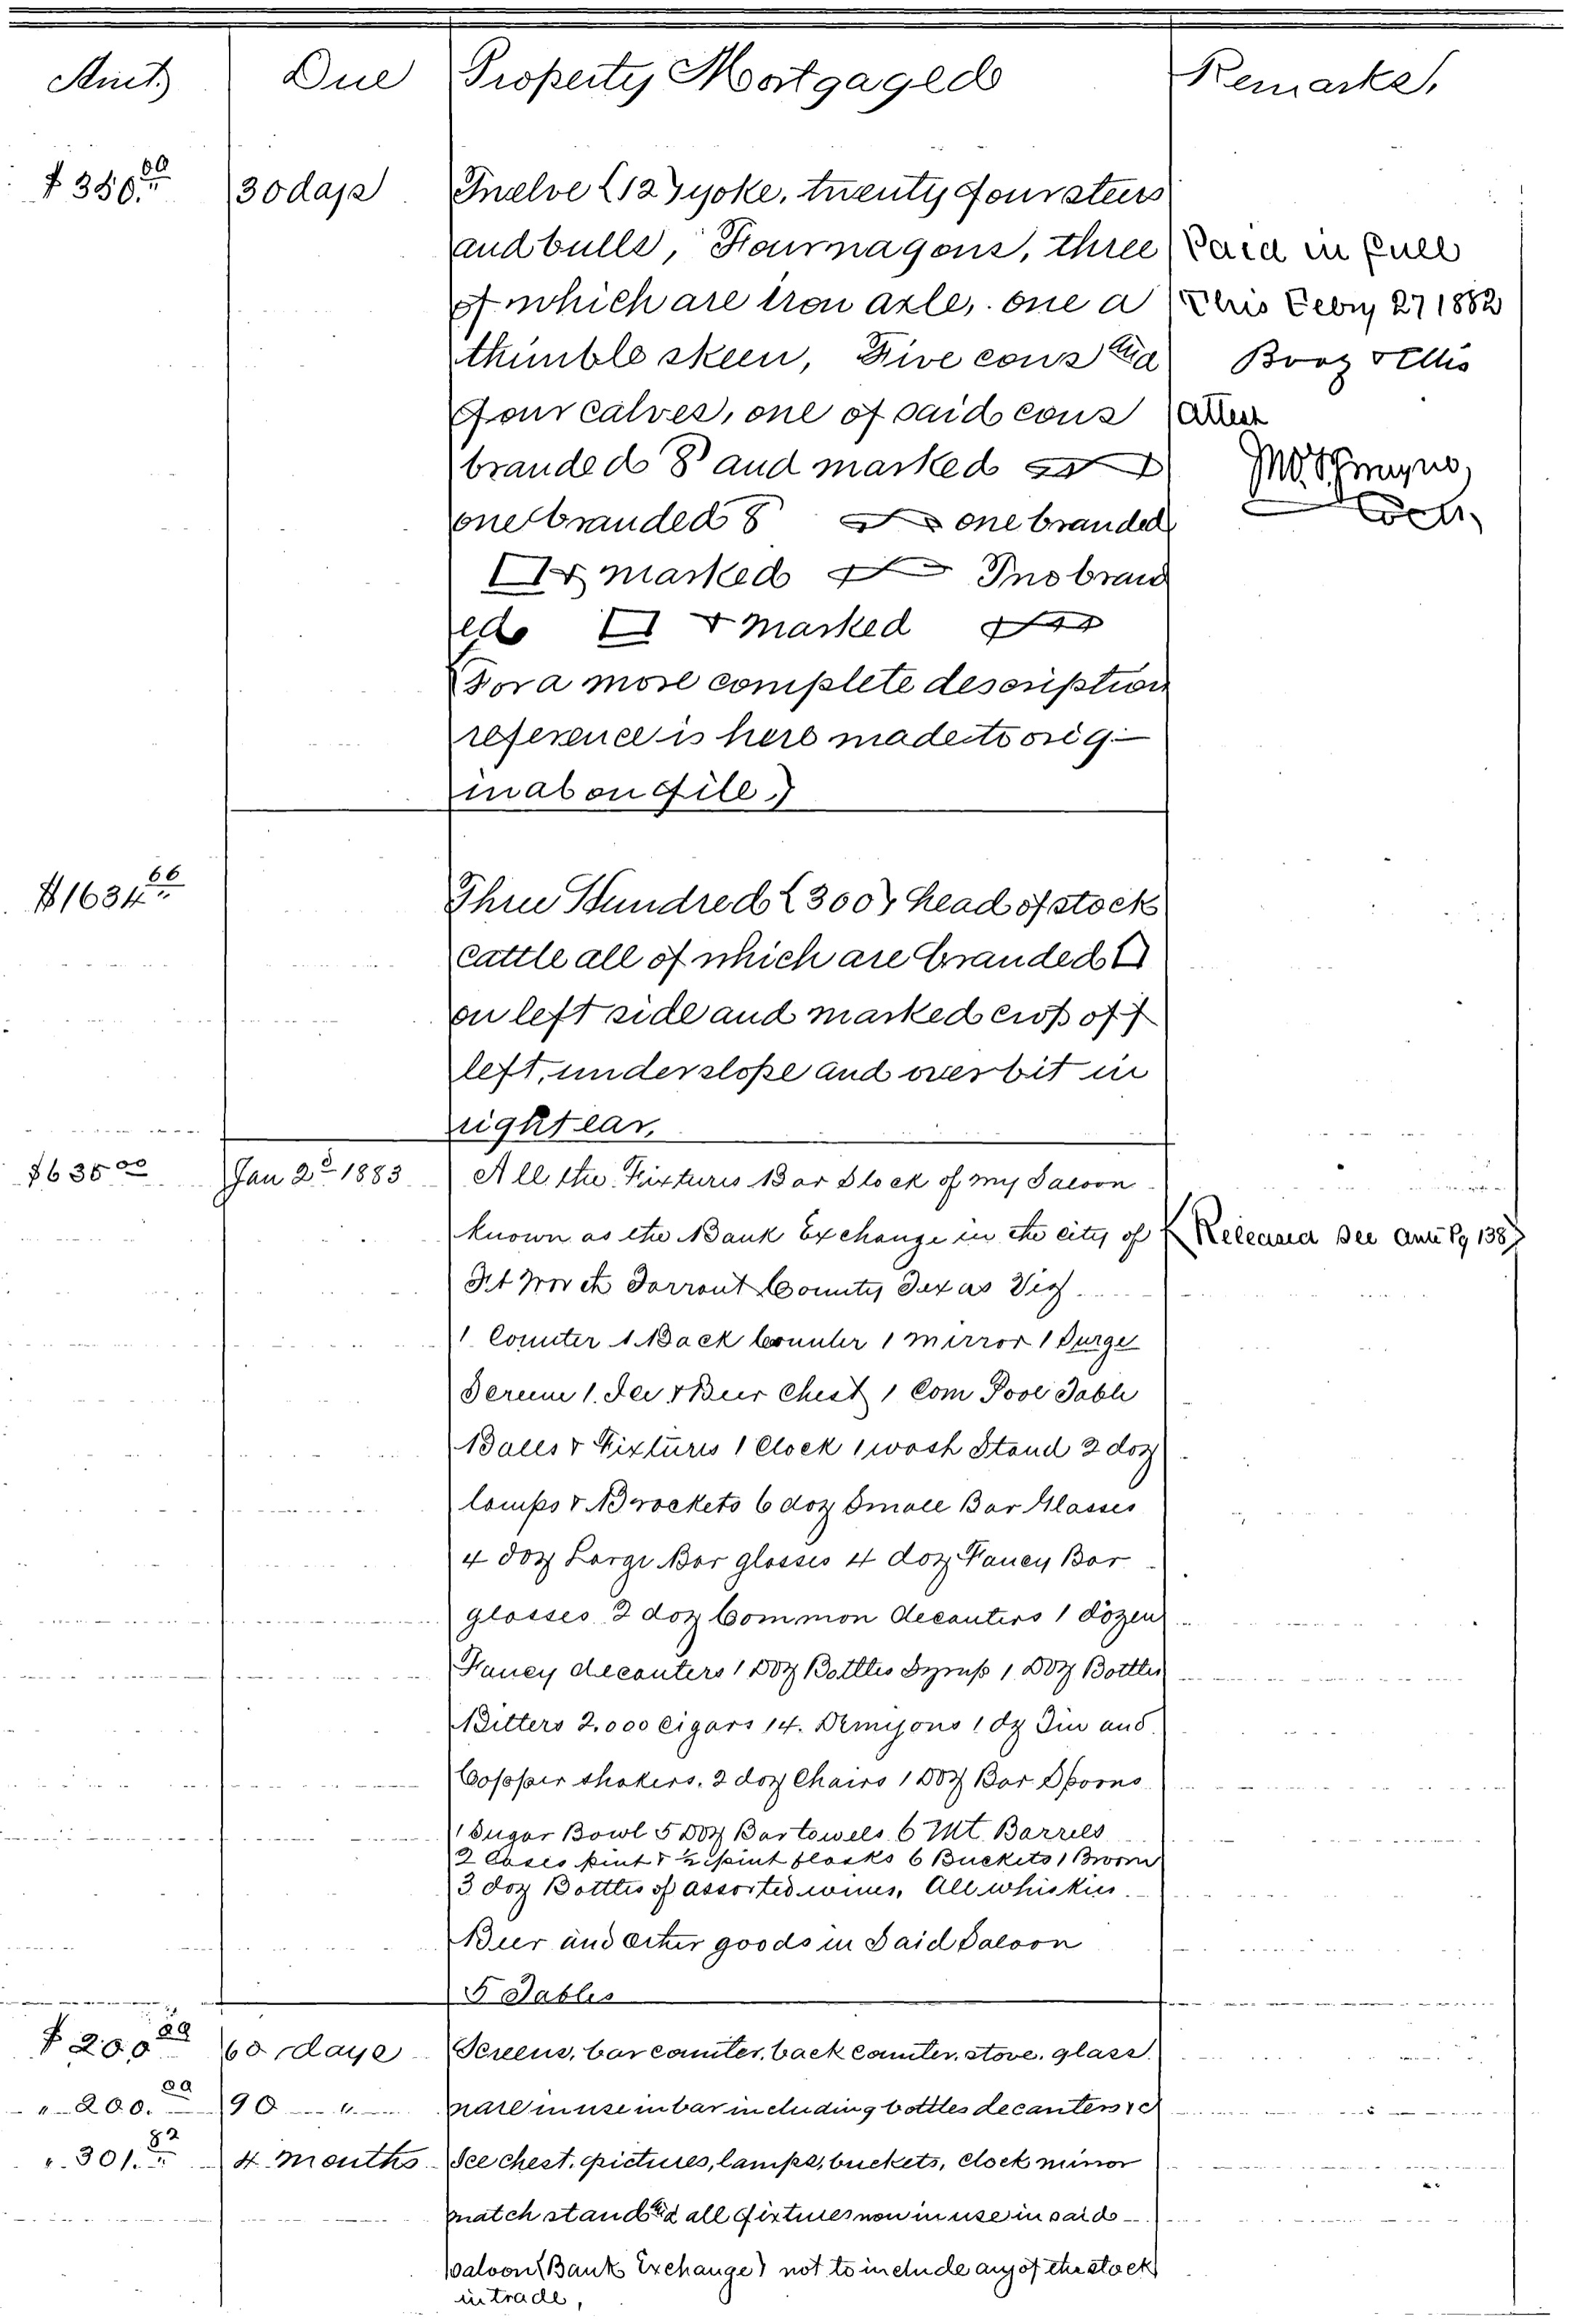 Amt. Due Property Mortgaged Remarks,
$350.00 30 days Twelve (12) yoke, twenty four steers
and bulls, Four wagons, three Paid in full
of which are iron axle, one a This Feby 27 1882
thimble skein, Five cows and Booz & Ellis
Four calves, one of said cows Attest
branded 8 and marked
one branded 8 one branded
& marked Two brand
ed & marked
For a more complete description
reference is here made to orig-
inal on file.)
$1634.66 Three Hundred (300) head of stock
cattle all of which are branded
on left side and marked crop off
left, underslope and overbit in
right ear,
$635 00 Jan 2d 1883 All the Fixtures Bar Stock of my Saloon
known as the Bank Exchange in the city of Released See Pg 138
Ft Worth Tarrant County Texas Viz.
1 Counter 1 Back Counter 1 Mirror 1 Large
Screen 1 Ice & Beer Chest 1 Com Pool Table
Balls & Fixtures 1 Clock 1 wash Stand 2 doz
lamps & Brackets 6 doz Small Bar Glasses
4 doz Large Bar glasses 4 doz Fancy Bar
glasses 2 doz Common decanters 1 dozen
Fancy decanters 1 Doz Bottles Syrup 1 Doz Bottles
Bitters 2.000 Cigars 14. Demijons 1 dz Tin and
Copper shakers. 2 doz Chairs 1 Doz Bar Spoons
1 Sugar Bowl 5 Doz Bar towels 6 Mt. Barrels
2 Cases pint & ½ pint flasks 6 Buckets 1 Broom
3 doz Bottles of assorted wines, All whiskies.
Beer and other goods in Said Saloon
5 Tables
$200 00 60 days Screens, bar counter, back counter, stove, glass
" 200. 00 90 " ware in use in bar including bottles decanters &c
" 301. 82 4 months Ice chest, pictures, lamps, buckets, clock mirror
match stand and all fixtures now in use in said
saloon (Bank Exchange) not to include any of the stock
in trade,